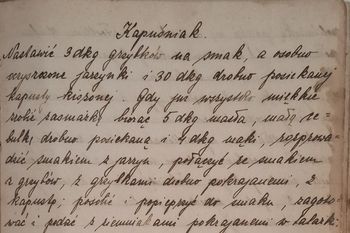 Kapuśniak.
Nastawić 3 dkg grzybków na smak, a osobno
wyszrone jarzynki i 30 dkg drobno posiekanej
kapusty kiszonej. Gdy już wszystko miękkie
zrobić zasmażkę biorąc 5 dkg masła, małą ce-
bulkę drobno posiekaną i 4 dkg mąki, rozprowa-
dzić smakiem z jarzyn, połączyć ze smakiem
z grzybów, z grzybkami drobno pokrajanemi, z
kapustą; posolić i popieprzyć do smaku, zagoto-
wać i podać z ziemniakami pokrajanemi w talark: